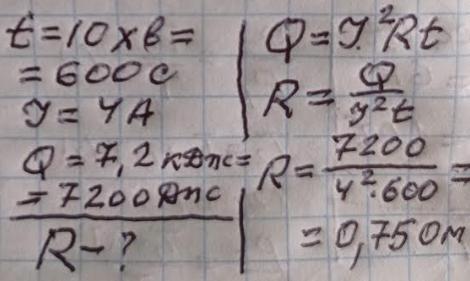 t=10 хв=
=600 с
I=4А
Q=7,2 кДж=
=7200 Дж
R-?
Q=I²Rt
R=Q/I²t
R=7200/4²·600=
=0,75 Ом